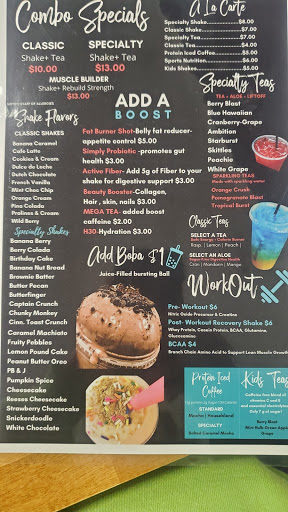 Combo Specials
CLASSIC
Shake+ Tea
$10.00
SPECIALTY
Shake+ Tea
$13.00
MUSCLE BUILDER
Shake+ Rebuild Strength
$13.00
A La Carte
Specialty Shake $6.00
Classic Shake $7.00
Specialty Tea $7.00
Classic Tea $4.00
Protein Iced Coffee $5.00
Sports Nutrition $6.00
Kids Shake $5.00
Shake Flavors
CLASSIC SHAKES
Banana Caramel
Cafe Latte
Cookies & Cream
Dulce du Leche
Dutch Chocolate
French Vanilla
Mint Choc Chip
Orange Cream
Pina Colada
Pralines & Cream
Wild Berry
Specialty Shakes
Banana Berry
Berry Colada
Birthday Cake
Banana Nut Bread
Brownie Batter
Butter Pecan
Butterfinger
Captain Crunch
Chunky Monkey
Cinn. Toast Crunch
Caramel Machiato
Fruity Pebbles
Lemon Pound Cake
Peanut Butter Oreo
PB & J
Pumpkin Spice
Cheesecake
Reese Cheesecake
Strawberry Cheesecake
Snickerdoodle
White Chocolate
ADD A
BOOST
Fat Burner Shot-Belly fat reducer-
appetite control $5.00
Simply Probiotic -promotes gut
health $3.00
Active Fiber- Add 5g of Fiber to your
shake for digestive support $3.00
Beauty Booster-Collagen,
Hair , skin, nails $3.00
MEGA TEA- added boost
caffeine $2.00
H30-Hydration $3.00
Add Boba $1
Juice-Filled bursting Ball
Specialty Teas
TEA + ALOA + LIFTOFF
Berry Blast
Blue Hawaiian
Cranberry-Grape
Ambition
Starburst
Skittles
Peachie
White Grape
SPARKLING TEAS
Made with sparkling water
Orange Crush
Pomegranate Blast
Tropical Burst
Classic Teas
SELECT A TEA
Rasp. | Lemon | Peach |
SELECT AN ALOE
Supporting Digestive Health
Cran | Mandarin | Mango
WorkOut
Pre- Workout $6
Nitric Oxide Precursor & Creatine
Post- Workout Recovery Shake $6
Whey Protein, Casein Protein, BCAA, Glutamine,
BCAA $4
Branch Chain Amino Acid to Support Lean Muscle Growth
Protein Iced
Coffee
STANDARD
Mocha | Houseblend
SPECIALTY
Salted Caramel Mocha
Kids Teas
Caffeine free blend of
vitamins C and E
and essential electrolytes
Only 1 g of sugar!
Berry Blast
Grape